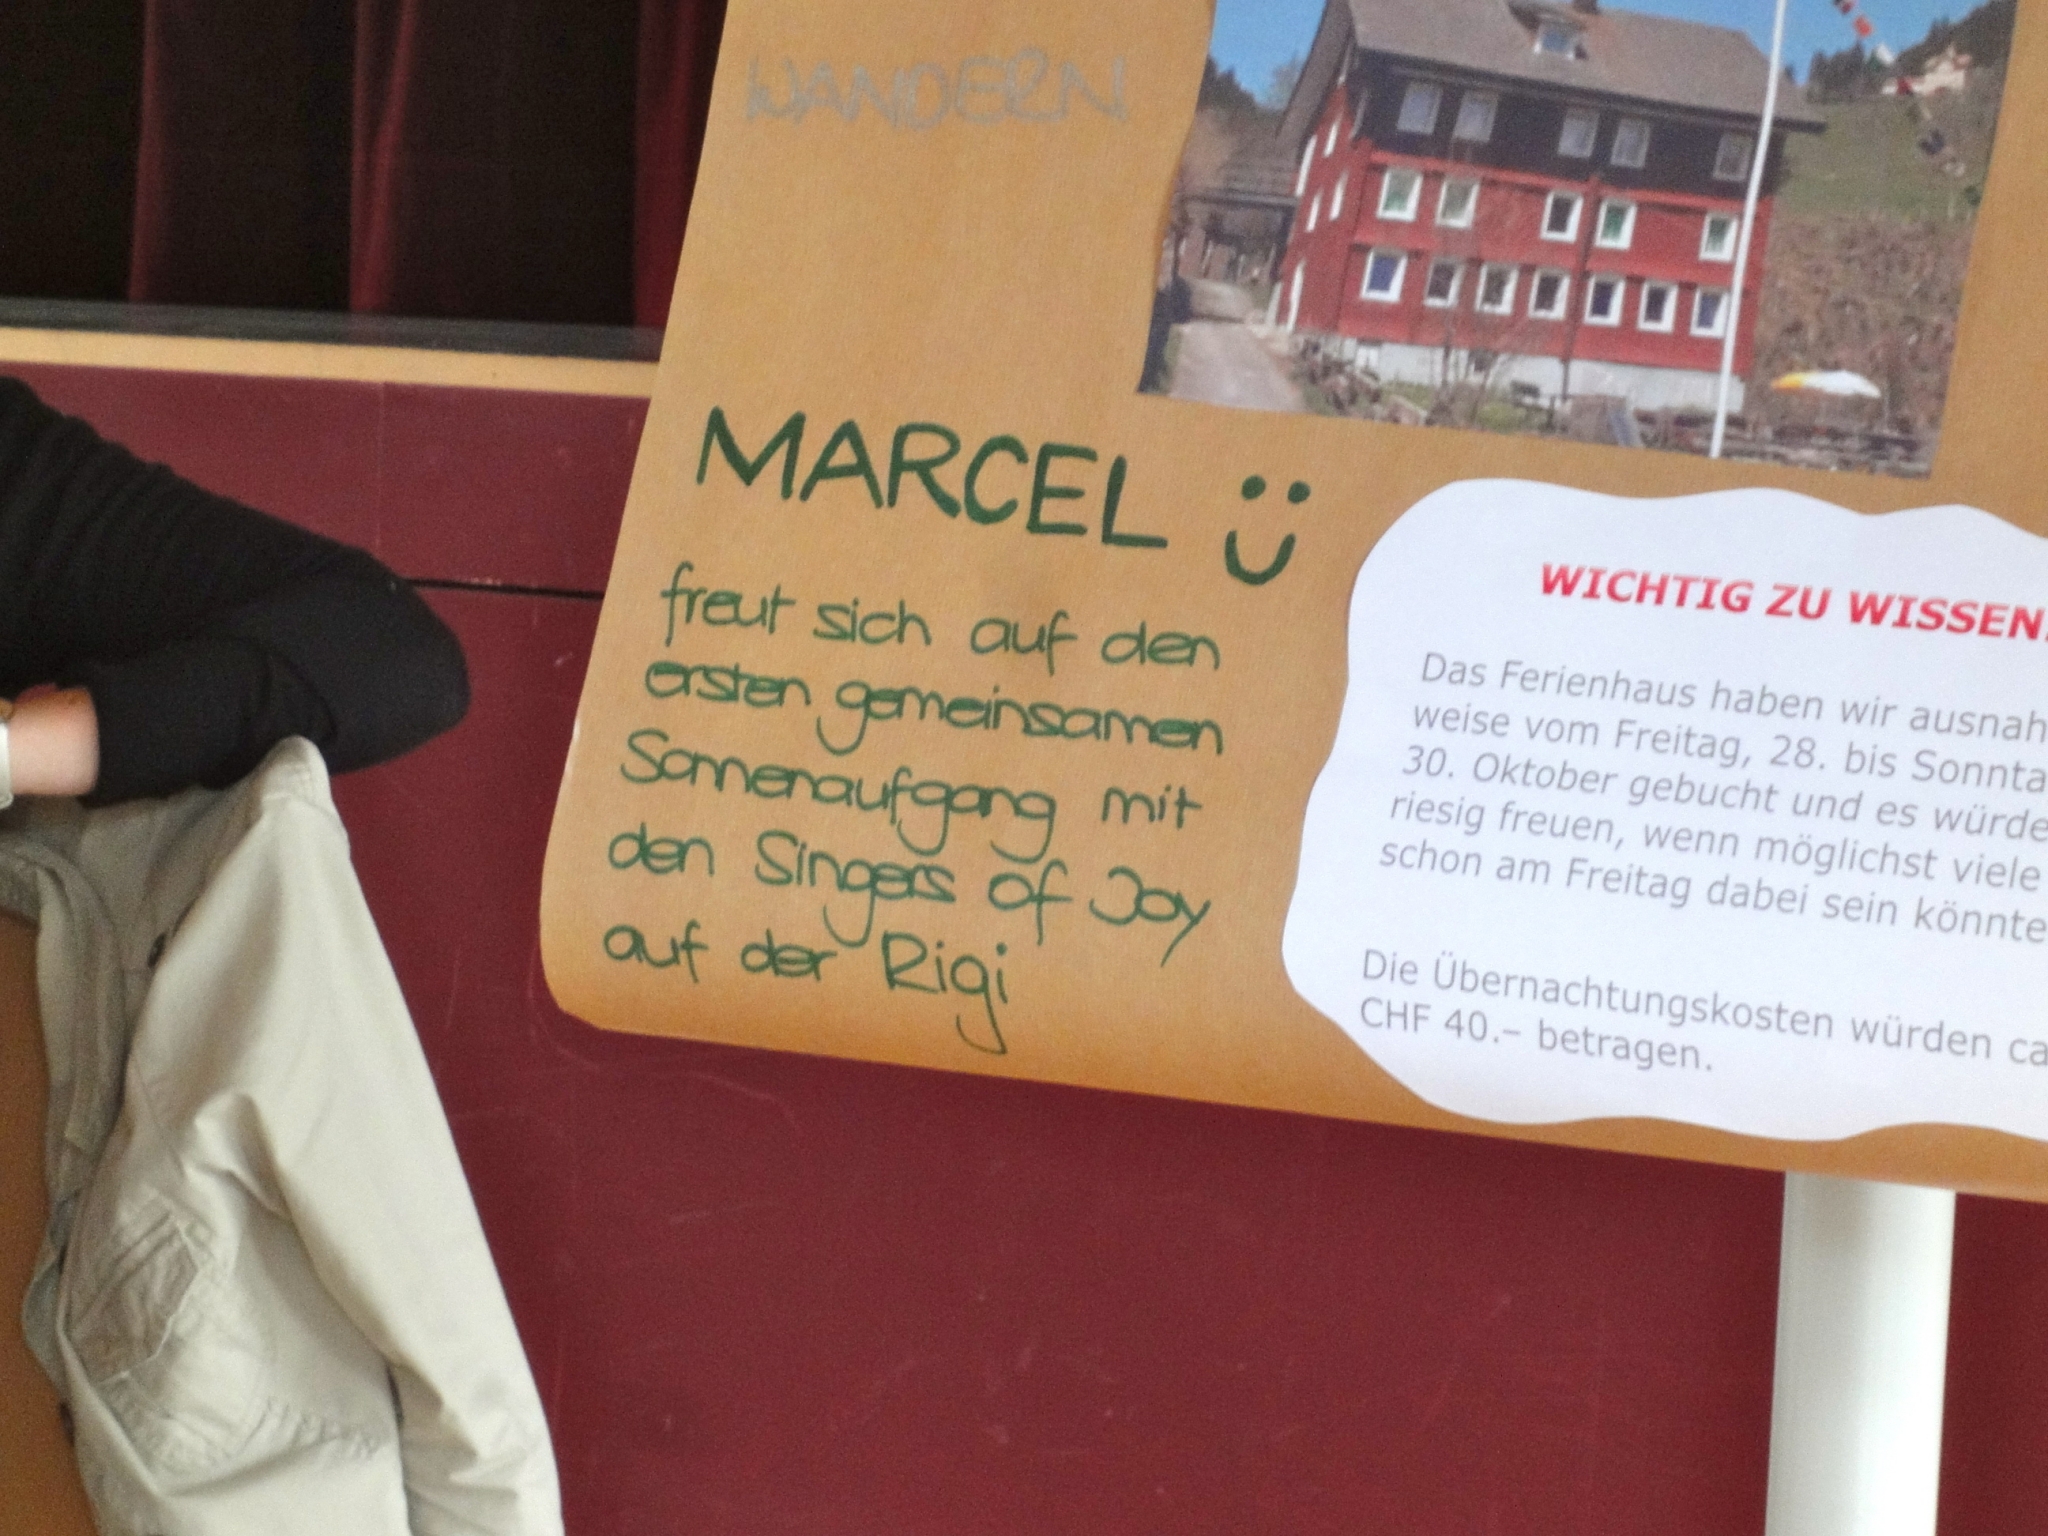 WANDERN
MARCEL
freut sich auf den
ersten gemeinsamen
Sonnenaufgang mit
den Singers of Joy
auf der Rigi
WICHTIG ZU WISSEN:
Das Ferienhaus haben wir ausnah
weise vom Freitag, 28. bis Sonnta
30. Oktober gebucht und es würde
riesig freuen, wenn möglichst viele
schon am Freitag dabei sein könnte
Die Übernachtungskosten würden ca
CHF 40.– betragen.